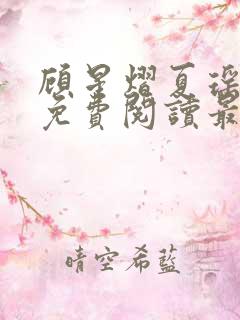 顾星熠夏瑶
免費閱讀最
晴空希藍